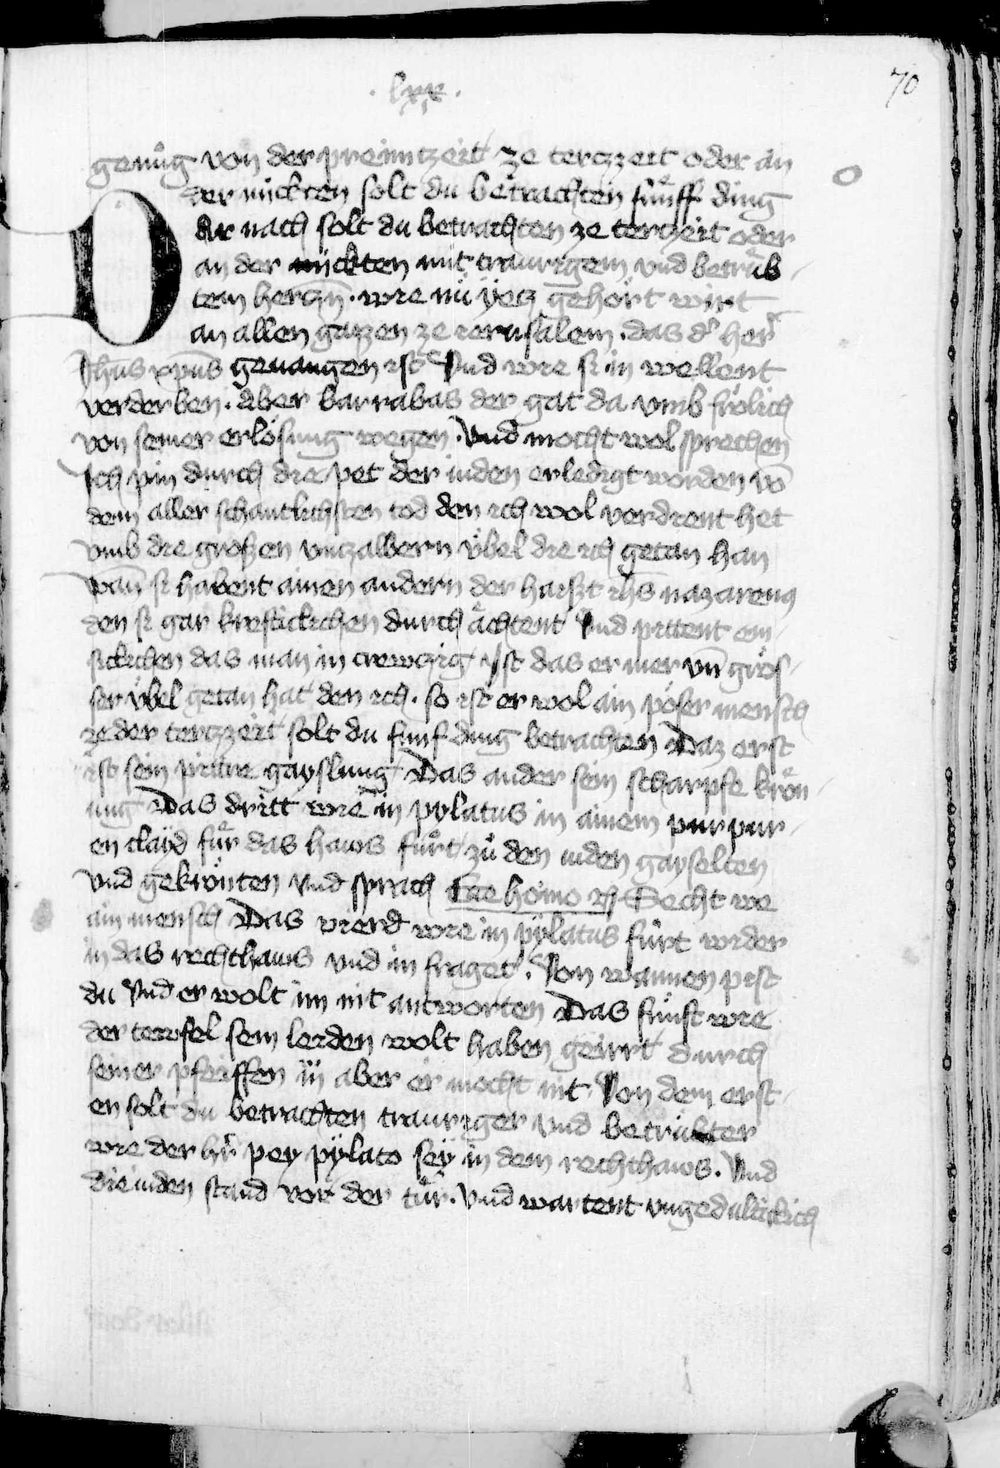 · lxx ·
70
genůg von der preimtzeit ze terczzeit oder an
der mickten solt du betrachten fünff ding
Dar nach solt du betrachten ze terczeit oder
an der mickten mit traurigem vnd betrüb-
tem herczn̄ · wie nu yecz gehört wirt
an allen gazzen ze ierusalem · das dͬ herͬ
Jhūs xpūs geuangen ist Vnd wie si in wellent
verderben · Aber barrabas der gat da vmb frölich
von seiner erlösung wegen · Vnd mocht wol sprechen
Ich pin durch die pet der iuden erledigt worden vō
dem aller schantlichsten tod den ich wol verdient het
vmb die grossen vnczalbern übel die ich getan han
Wan̄ si habent ainen andern der haiszt ihs̄ nazarenus
den si gar kreftickichen durch ächtent Vnd pittent em-
sickichen das man in crewczig Ist das er mer vn̄ grös-
ser übel getan hat den ich · so ist er wol ain pöser mensch
ze der terczzeit solt du funf ding betrachten Daz erst
ist sein pittre gayslung Das ander sein scharpfe krön-
ung Das dritt wie in pylatus in ainem purpur-
en clayd für das haws fürt zů den iuden gayselten
Vnd gekrönten Vnd sprach Ecce homo ich Secht we
ain mensch Das vierd wie in pylatus fürt wider
in das rechthaws vnd in fraget · Von wannen pist
du Vnd er wolt im nit antworten Das fünft wie
der tewfel sein leiden wolt haben geirrt durch
seiner pfeiffen iii aber er mocht nit · Von dem erst-
en solt du betrachten trauriger vnd betrübter
wie der hͬr pey pylato sey in dem rechthaws · Vnd
die iuden stand vor der tür · vnd wartent vngedultickich